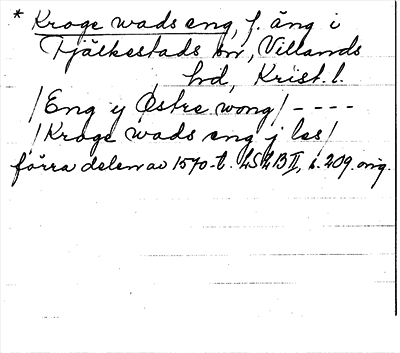 * Kroge wads eng, f. äng i
Fjälkestads sn, Villands
hd, Krist. l.
/Eng y Østre wong/ - - - -
/Kroge wads eng j les/
förra delen av 1570-t. LSLB II, s. 209. orig.